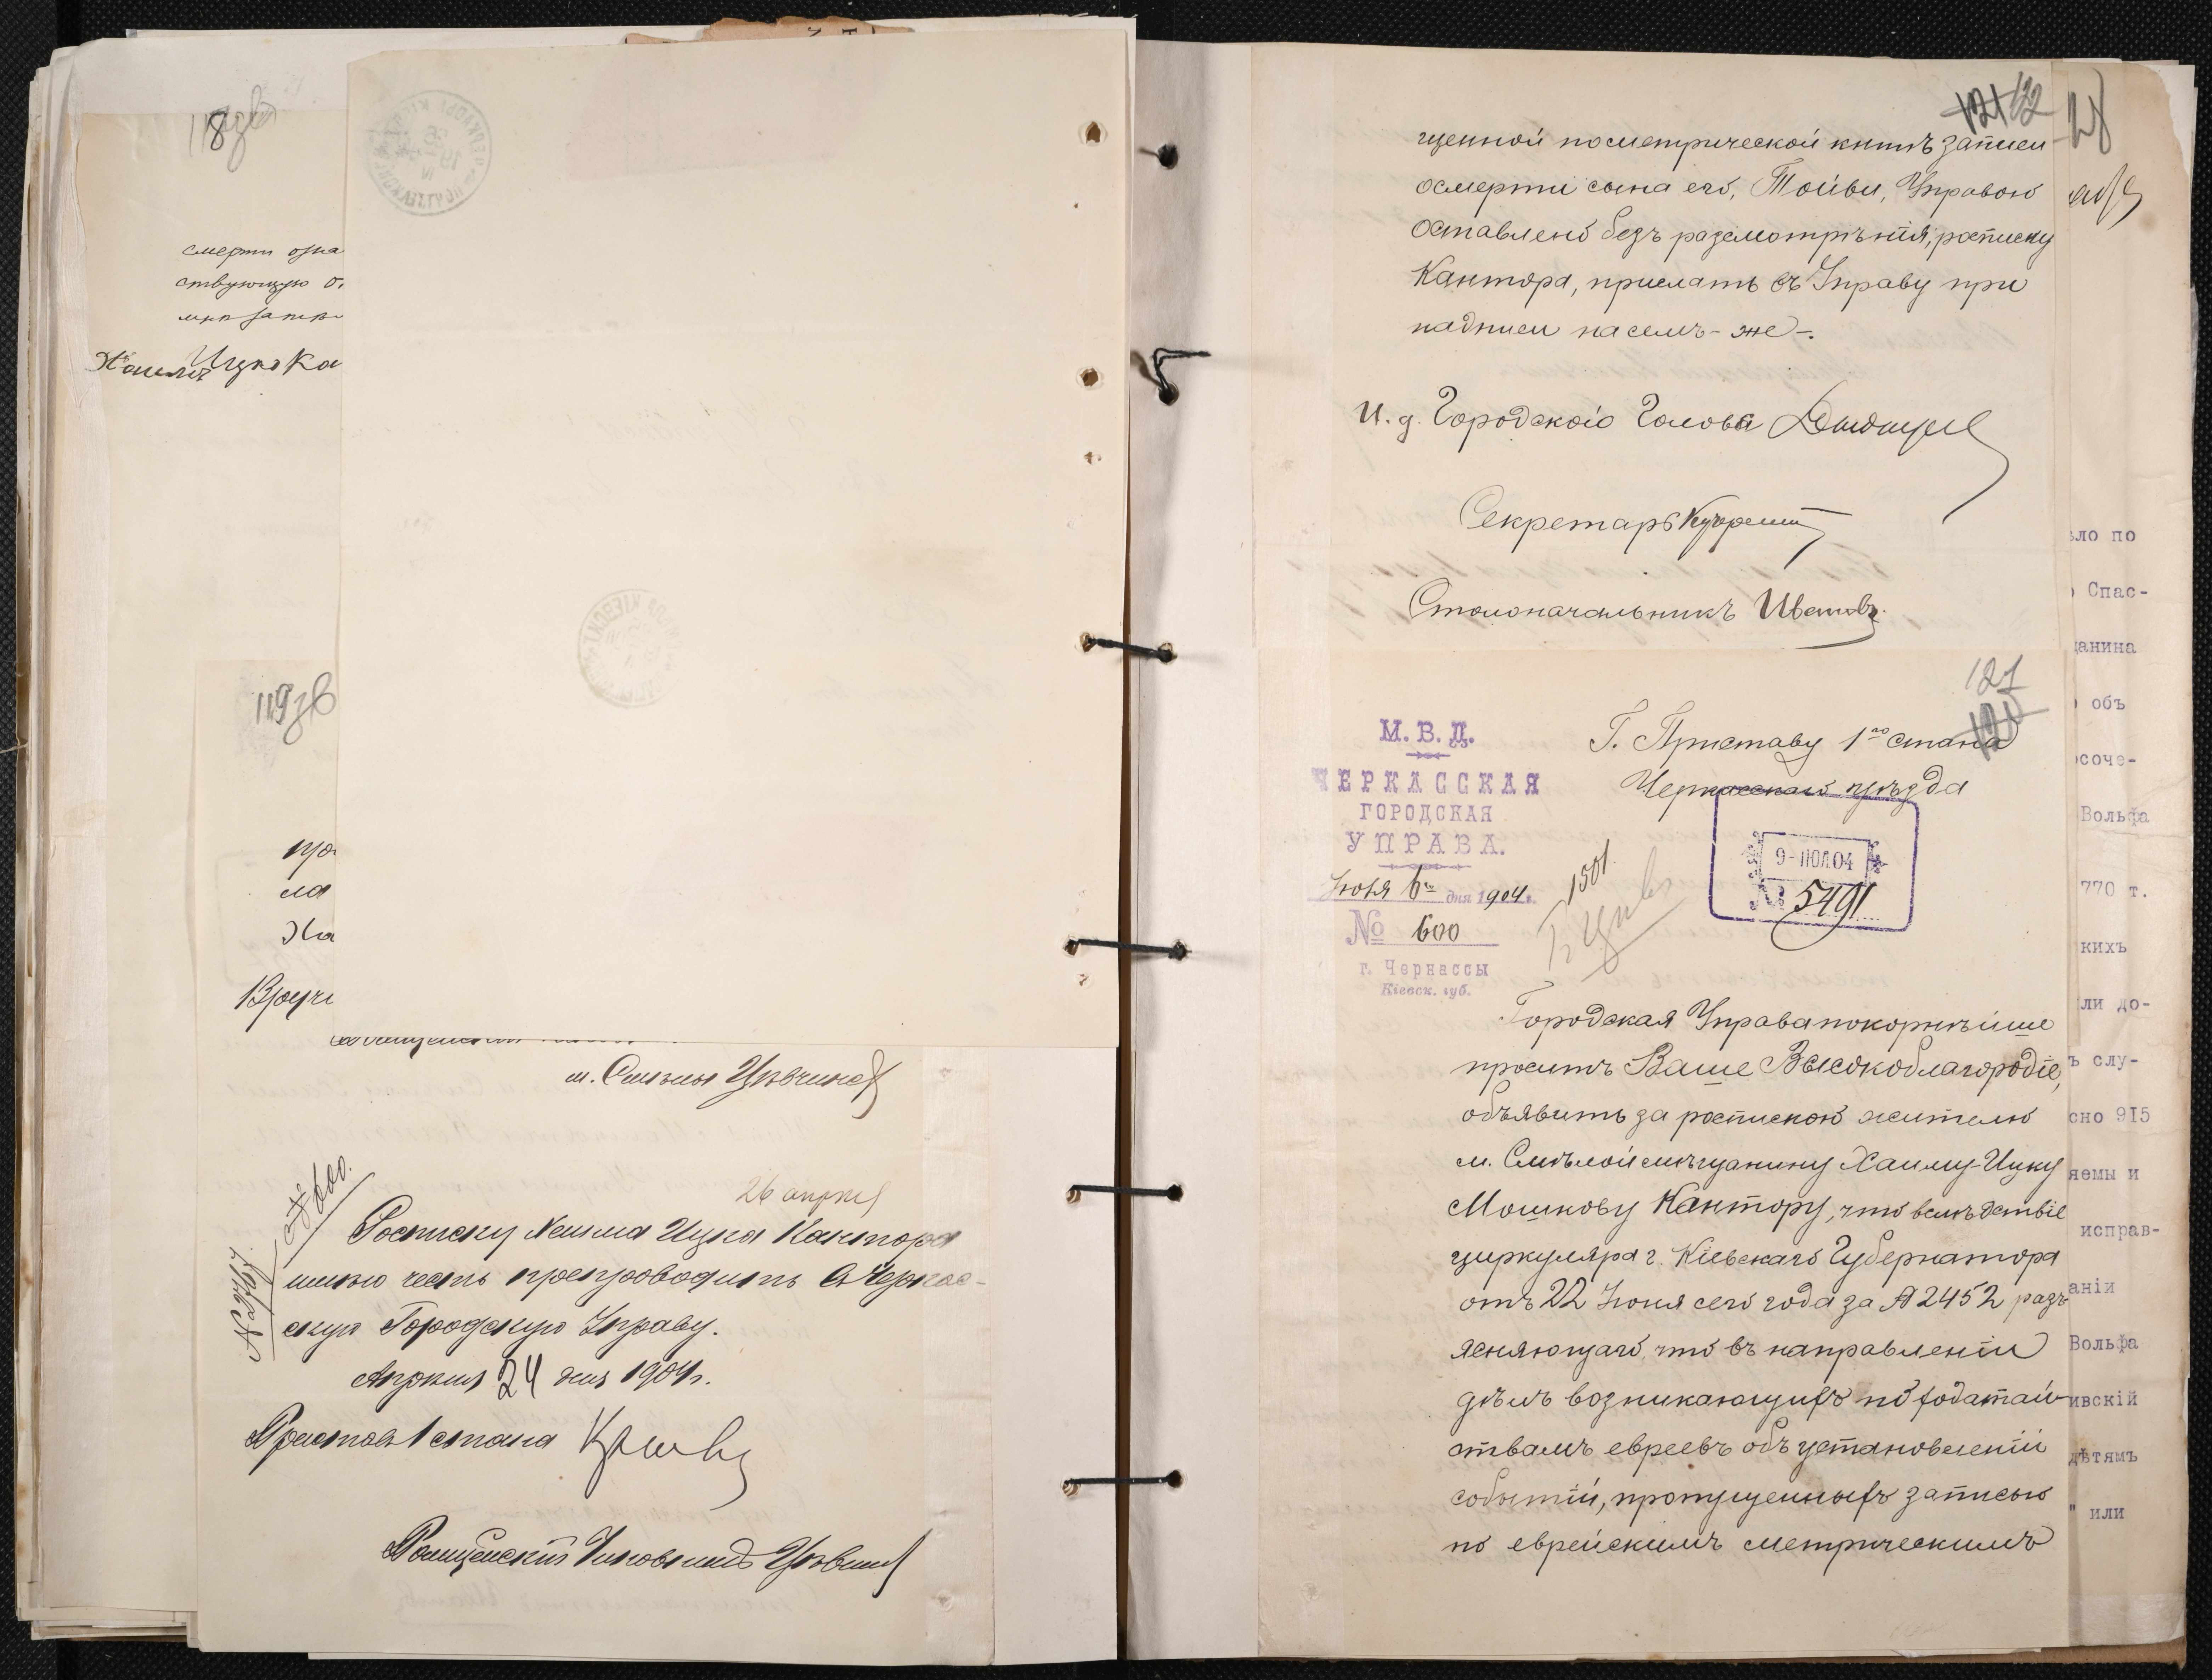 118
смерти озна
ствующую
Хаимъ Ицко Ка
119
ла
Ха
Вручи
м. Смелы
26 апреля
№ 600.
Росписку Хаима Ицка Кантора
имею честь препроводить въ Черкас-
скую Городскую Управу.
Апреля 24 дня 1904 г.
Приставъ 1 стана
Полицейскій Чиновникъ
121 122
щенной по метрической книгѣ записи
о смерти сына его, Тойви, Управою
оставлено безъ разсмотрѣнія; росписку
Кантора, прислать въ Управу при
надписи на семъ-же-.
И. д. Городского Головы
Секретарь
Столоначальникъ Ивановъ
121
120
М. В. Д.
ЧЕРКАССКАЯ
ГОРОДСКАЯ
УПРАВА.
Іюля 6го дня 1904 г.
№ 600
г. Черкассы
Кіевск. губ.
Г. Приставу 1го стана
Черкасскаго уѣзда
9-ІЮЛ 04
№ 5491
1501
Городская Управа покорнѣйше
проситъ Ваше Высокоблагородіе,
объявить за роспискою жителю
м. Смѣлой мѣщанину Хаиму-Ицку
Мошкову Кантору, что вслѣдствіе
циркуляра г. Кіевскаго Губернатора
отъ 22 Іюня сего года за № 2452 разъ
ясняющаго, что въ направленіи
дѣлъ возникающихъ по ходатай-
ствамъ евреевъ объ установленіи
событій, пропущенныхъ записью
по еврейскимъ метрическимъ
ло по
Спас-
данина
объ
соче-
Вольфа
770 т.
кихъ
ли до-
ъ слу-
сно 915
яемы и
исправ-
аніи
Вольфа
ивскій
дѣтямъ
" или